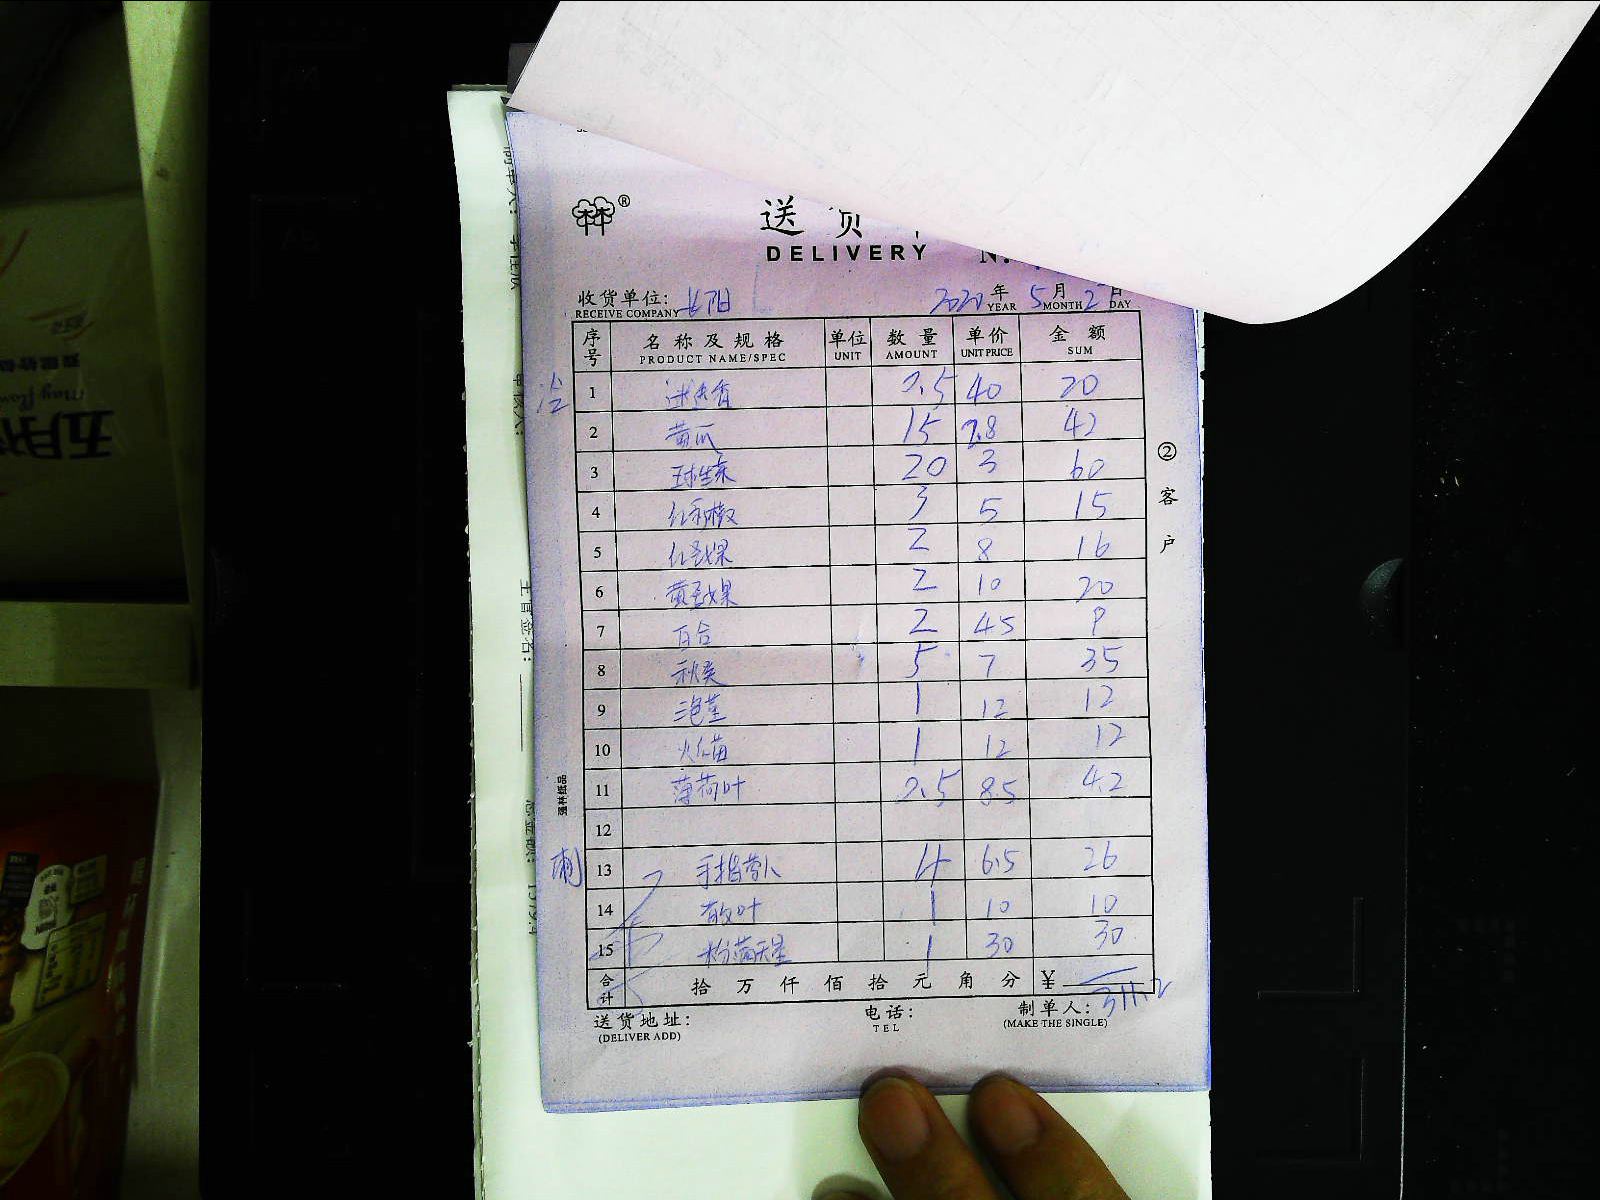 ®
送 货
DELIVERY
收货单位: 长阳 2020 年 5 月 2 日
RECEIVE COMPANY YEAR MONTH DAY
序号 名称及规格 单位 数量 单价 金额
PRODUCT NAME/SPEC UNIT AMOUNT UNIT PRICE SUM
1 迷迭香 0.5 40 20
2 黄瓜 15 2.8 42
3 球生菜 20 3 60
4 红尖椒 3 5 15
5 红圣女果 2 8 16
6 黄圣女果 2 10 20
7 百合 2 4.5 9
8 秋葵 5 7 35
9 1 12 12
10 1 12 12
11 薄荷叶 0.5 8.5 4.2
12
13 手指 4 6.5 26
14 叶 1 10 10
15 粉满天星 1 30 30
合计 拾 万 仟 佰 拾 元 角 分 ¥ 311.2
送货地址: 电话: 制单人:
(DELIVER ADD) TEL (MAKE THE SINGLE)
② 客户
强林纸品
五月花
May flower